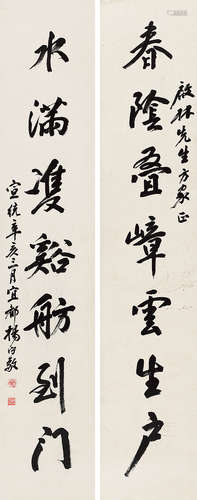 啟林先生方家正
春陰疊嶂雲生户
水滿雙谿舫到门
宣統辛亥三月宜都楊守敬